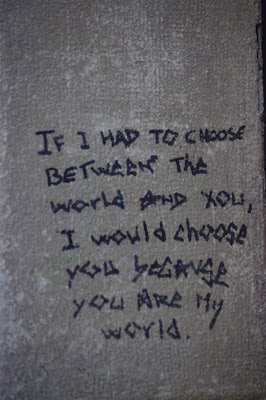 IF I HAD TO CHOOSE
BETWEEN THE
world AND YOU,
I would choose
you because
you ARE My
world.